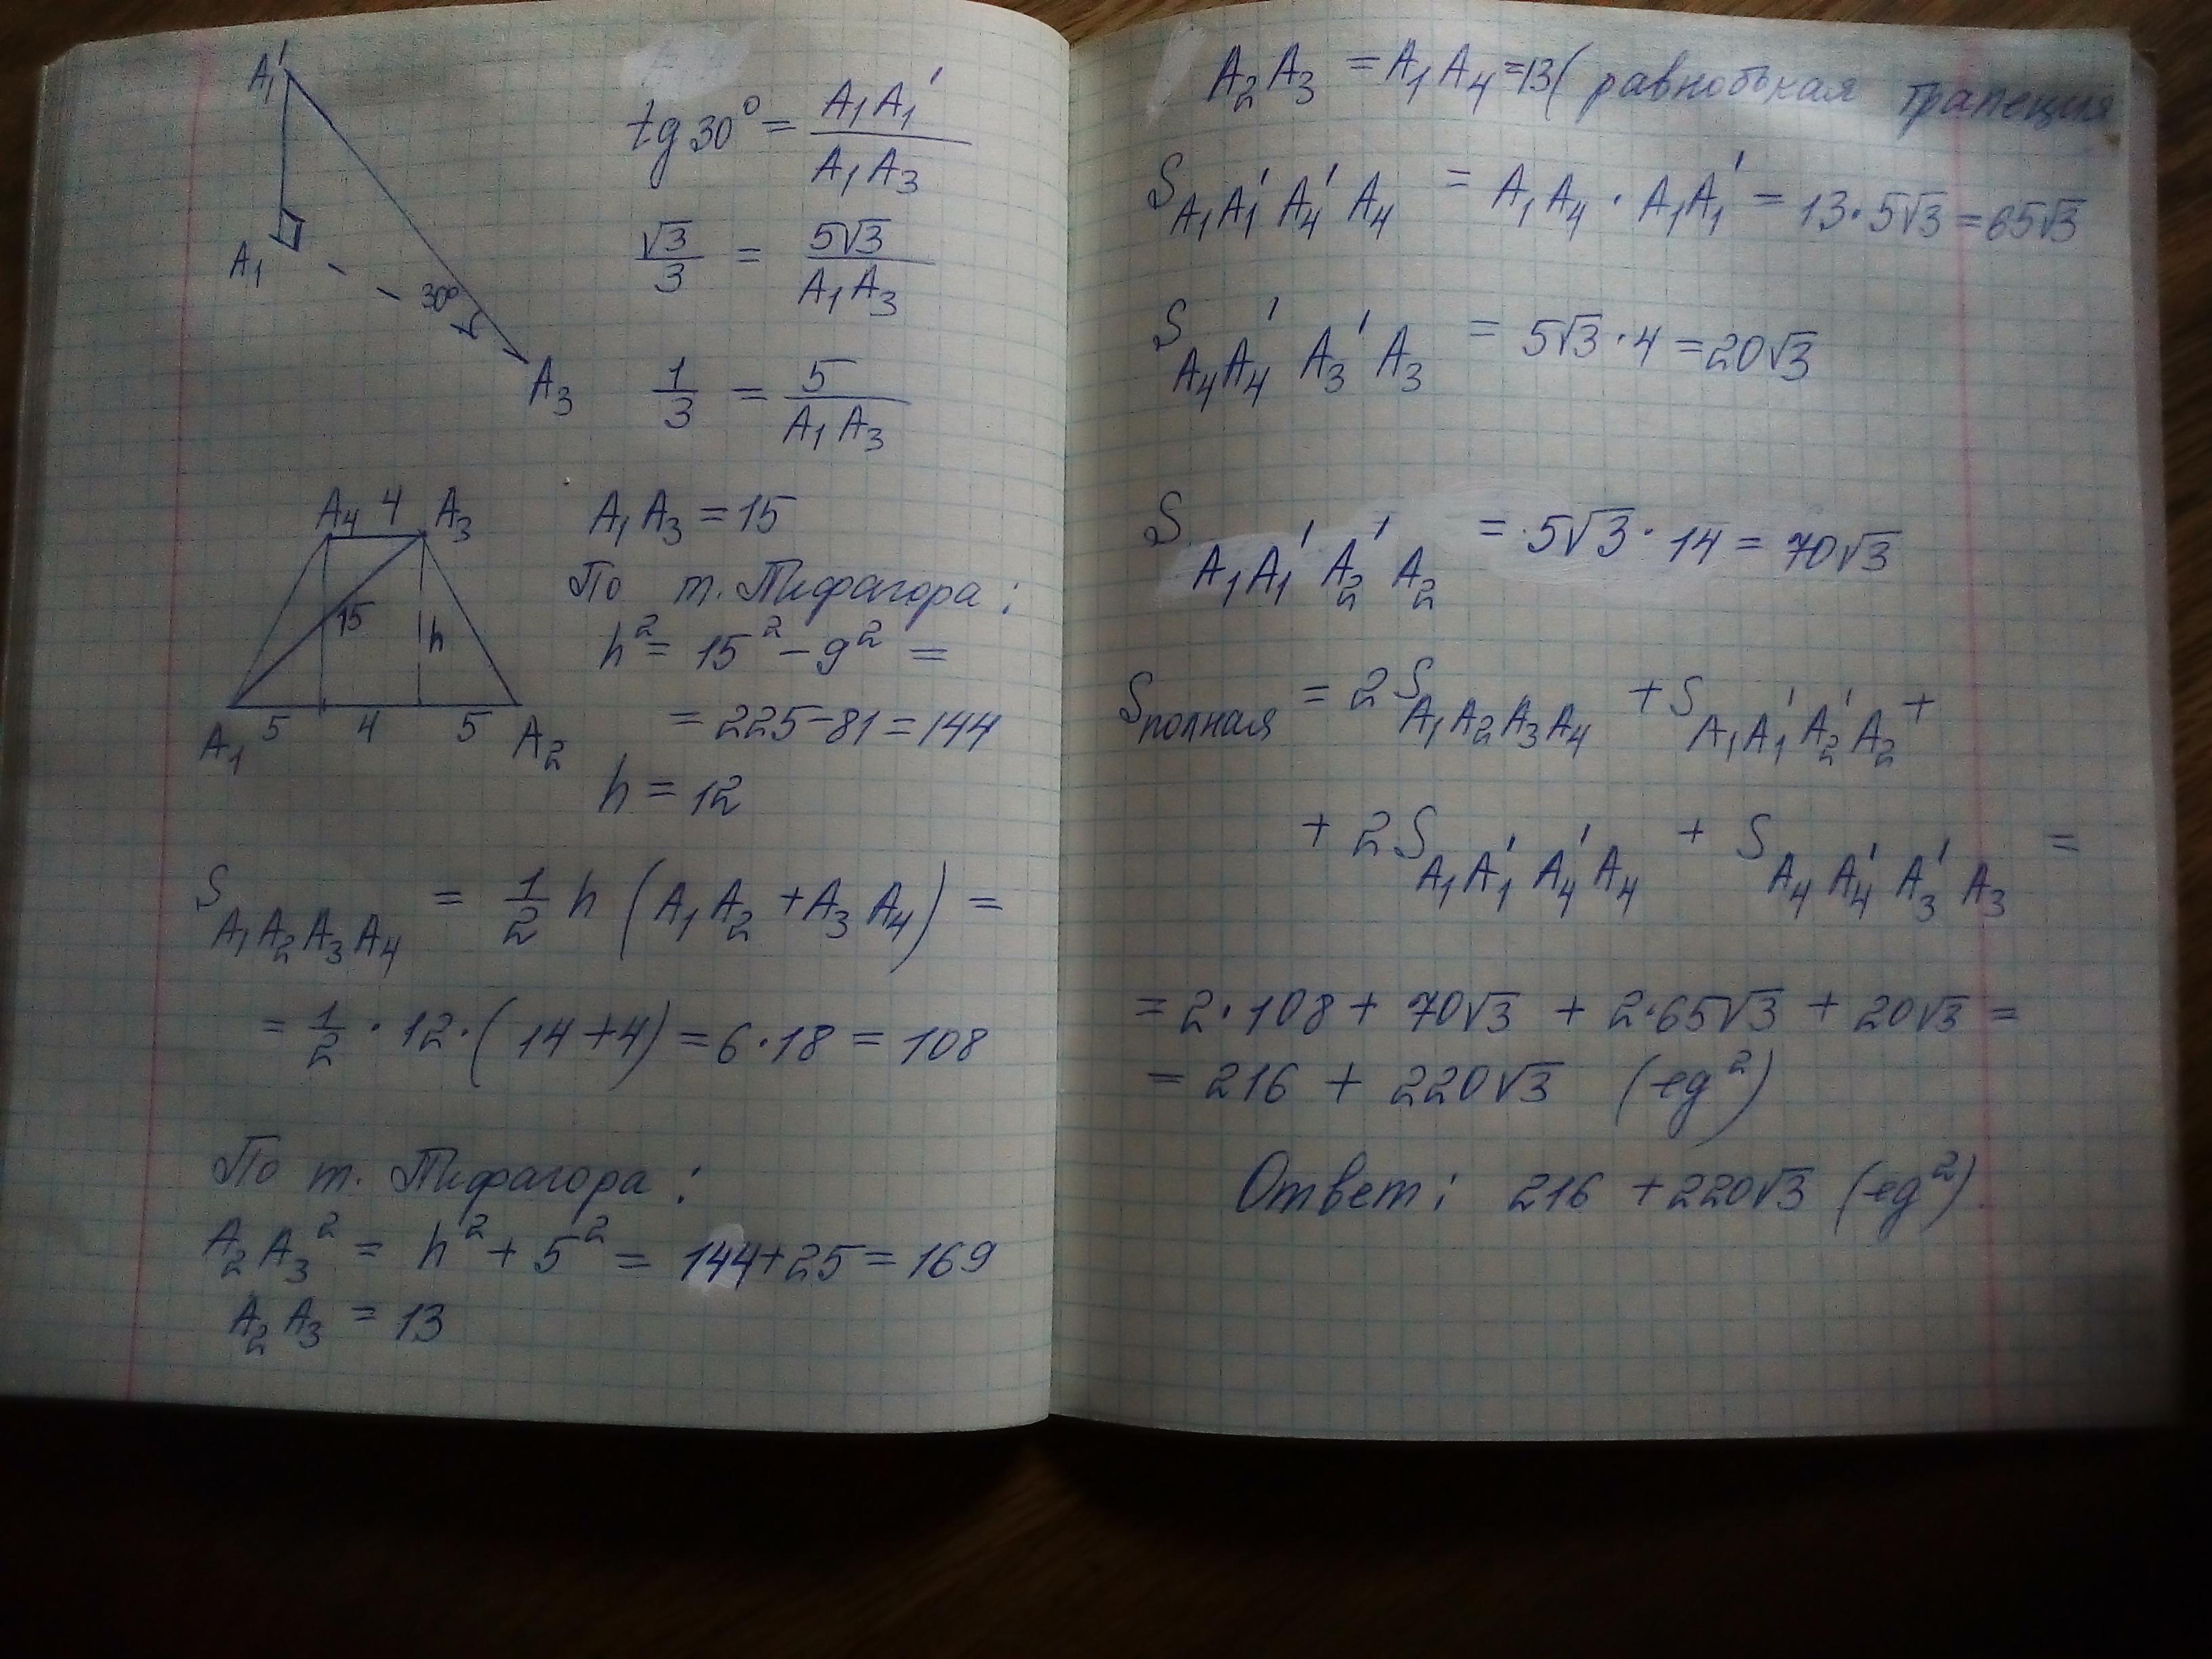 A₁'
A₁
30°
A₃
tg 30° = A₁A₁' / A₁A₃
√3/3 = 5√3 / A₁A₃
1/3 = 5 / A₁A₃
A₄ 4 A₃
15
h
A₁ 5 4 5 A₂
A₁A₃ = 15
По т. Пифагора:
h² = 15² - 9² =
= 225 - 81 = 144
h = 12
S A₁A₂A₃A₄ = 1/2 h (A₁A₂ + A₃A₄) =
= 1/2 · 12 · (14 + 4) = 6 · 18 = 108
По т. Пифагора:
A₂A₃² = h² + 5² = 144 + 25 = 169
A₂A₃ = 13
A₂A₃ = A₁A₄ = 13 (равнобокая трапеция
S A₁A₁'A₄'A₄ = A₁A₄ · A₁A₁' = 13 · 5√3 = 65√3
S A₄A₄'A₃'A₃ = 5√3 · 4 = 20√3
S A₁A₁'A₂'A₂ = 5√3 · 14 = 70√3
Sполная = 2S A₁A₂A₃A₄ + S A₁A₁'A₂'A₂ +
+ 2S A₁A₁'A₄'A₄ + S A₄A₄'A₃'A₃ =
= 2 · 108 + 70√3 + 2 · 65√3 + 20√3 =
= 216 + 220√3 (ед²)
Ответ: 216 + 220√3 (ед²).